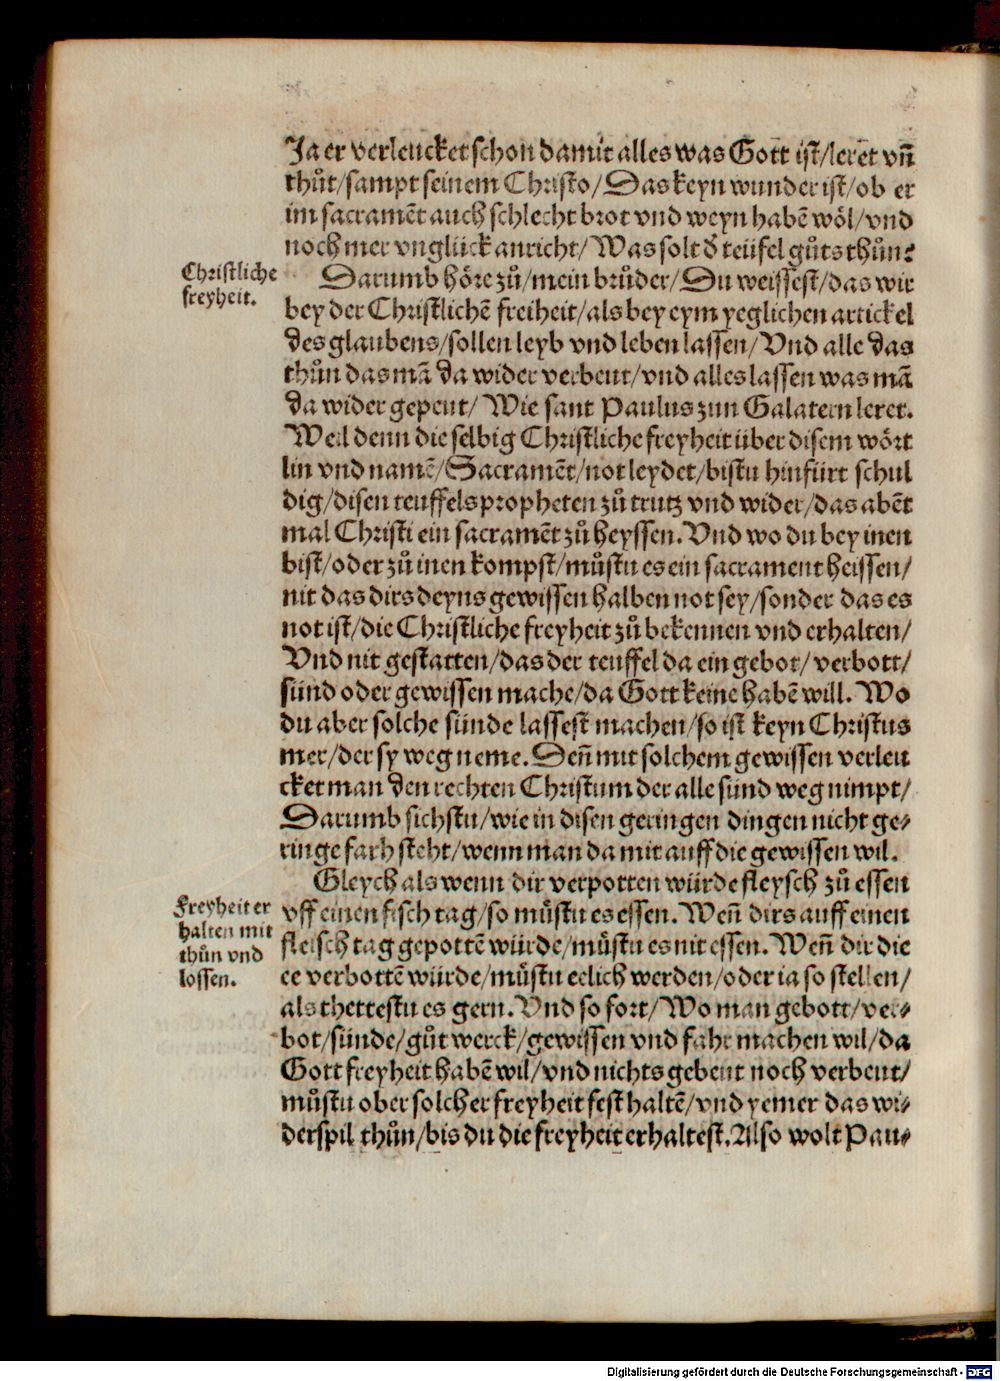 Ja er verleucket schon damit alles was Gott ist/ leret vñ
thůt/ sampt seinem Christo/ Das keyn wunder ist/ ob er
im sacramẽt auch schlecht brot vnd weyn habẽ wöl/ vnd
noch mer vnglück anricht/ Was solt d̓ teüfel gůts thůn?
Christliche
freyheit.
Darumb höre zů/ mein brůder/ Du weissest/ das wir
bey der Christlichẽ freiheit/ als bey eym yeglichen artickel
des glaubens/ sollen leyb vnd leben lassen/ Vnd alle das
thůn das mã da wider verbeut/ vnd alles lassen was mã
da wider gepeut/ Wie sant Paulus zun Galatern leret.
Weil denn die selbig Christliche freyheit über disem wört
lin vnd namẽ/ Sacramẽt/ not leydet/ bistu hinfürt schul
dig/ disen teuffels propheten zů trutz vnd wider/ das abẽt
mal Christi ein sacramẽt zů heyssen. Vnd wo du bey inen
bist/ oder zů inen kompst/ můstu es ein sacrament heissen/
nit das dirs deyns gewissen halben not sey/ sonder das es
not ist/ die Christliche freyheit zů bekennen vnd erhalten/
Vnd nit gestatten/ das der teuffel da ein gebot/ verbott/
sünd oder gewissen mache/ da Gott keine habẽ will. Wo
du aber solche sünde lassest machen/ so ist keyn Christus
mer/ der sy weg neme. Deñ mit solchem gewissen verleu
cket man den rechten Christum der alle sünd weg nimpt/
Darumb sichstu/ wie in disen geringen dingen nicht ge⸗
ringe farh steht/ wenn man da mit auff die gewissen wil.
Gleych als wenn dir verpotten würde fleysch zů essen
Freyheit er
halten mit
thůn vnd
lossen.
vff einen fisch tag/ so můstu es essen. Weñ dirs auff einen
fleisch tag gepottẽ würde/ můstu es nit essen. Weñ dir die
ee verbottẽ würde/ můstu eelich werden/ oder ia so stellen/
als thettestu es gern. Vnd so fort/ Wo man gebott/ ver⸗
bot/ sünde/ gůt werck/ gewissen vnd fahr machen wil/ da
Gott freyheit habẽ wil/ vnd nichts gebeut noch verbeut/
můstu ober solcher freyheit fest haltẽ/ vnd yemer das wi⸗
derspil thůn/ bis du die freyheit erhaltest. Also wolt Pau⸗
Digitalisierung gefördert durch die Deutsche Forschungsgemeinschaft - DFG